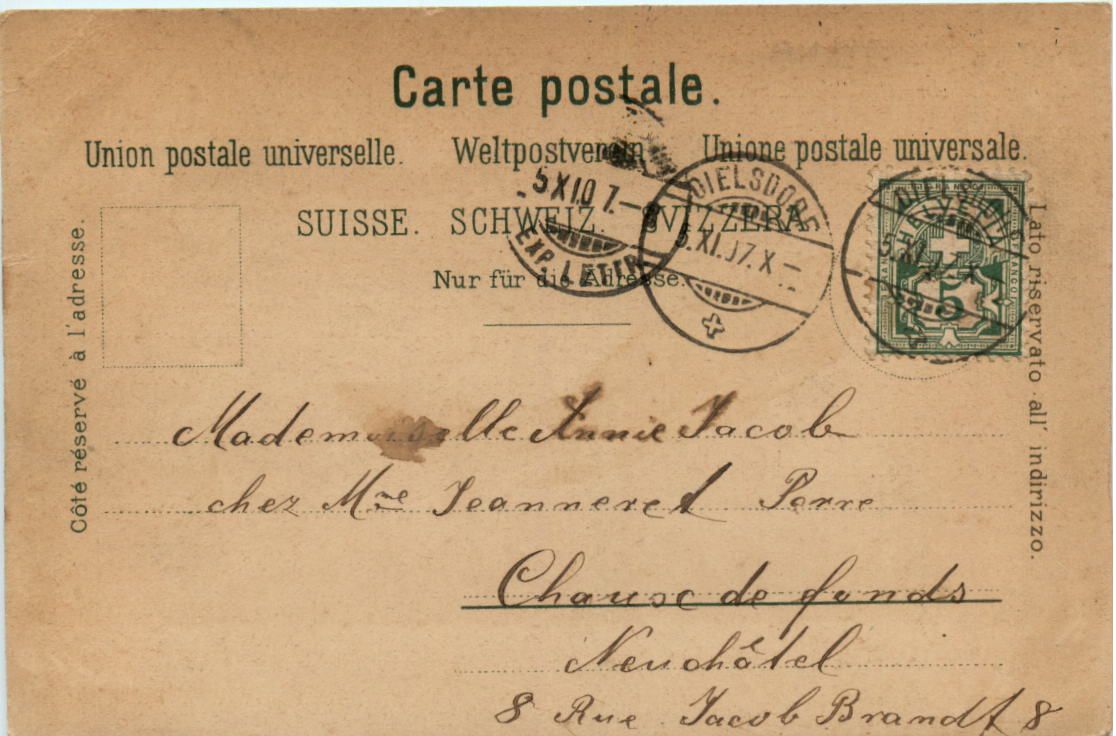 Carte postale.
Union postale universelle. Weltpostverein Unione postale universale.
SUISSE. SCHWEIZ. SVIZZERA.
Nur für die Adresse.
Côté réservé à l'adresse.
Lato riservato all' indirizzo.
5 XI.07.–8
EXP. LETTR.
DIELSDORF
5.XI.07.X–
DIELSDORF
5.XI.07.X–
HELVETIA
FRANCO
5
Mademoiselle Annie Jacob
chez Mme Jeanneret Perre
Chauxc de fonds
Neuchâtel
8 Rue Jacob Brandt 8